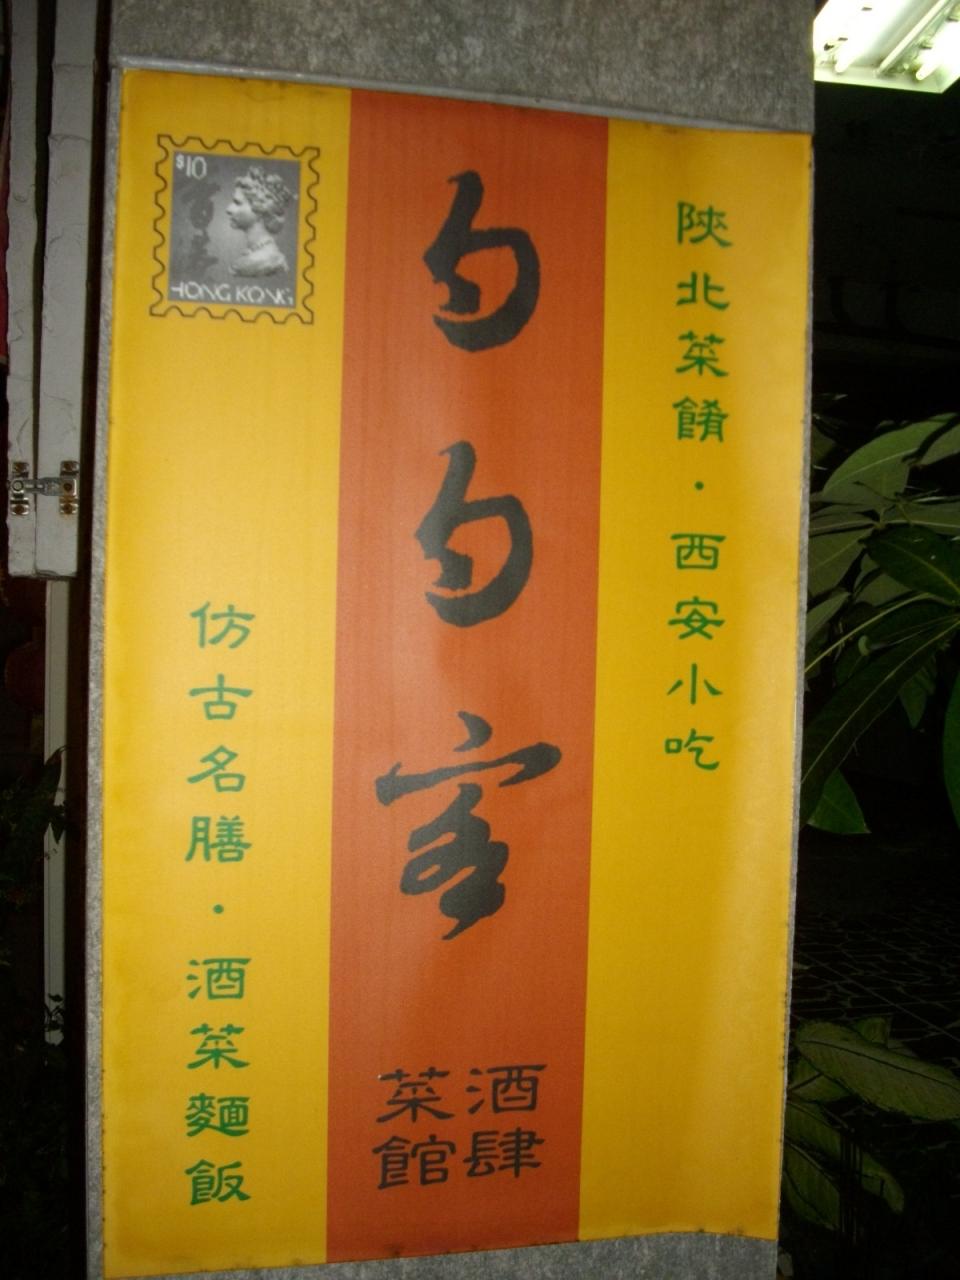 陝北菜餚・西安小吃
勺勺客
酒肆
菜館
$10
HONG KONG
仿古名膳・酒菜麵飯